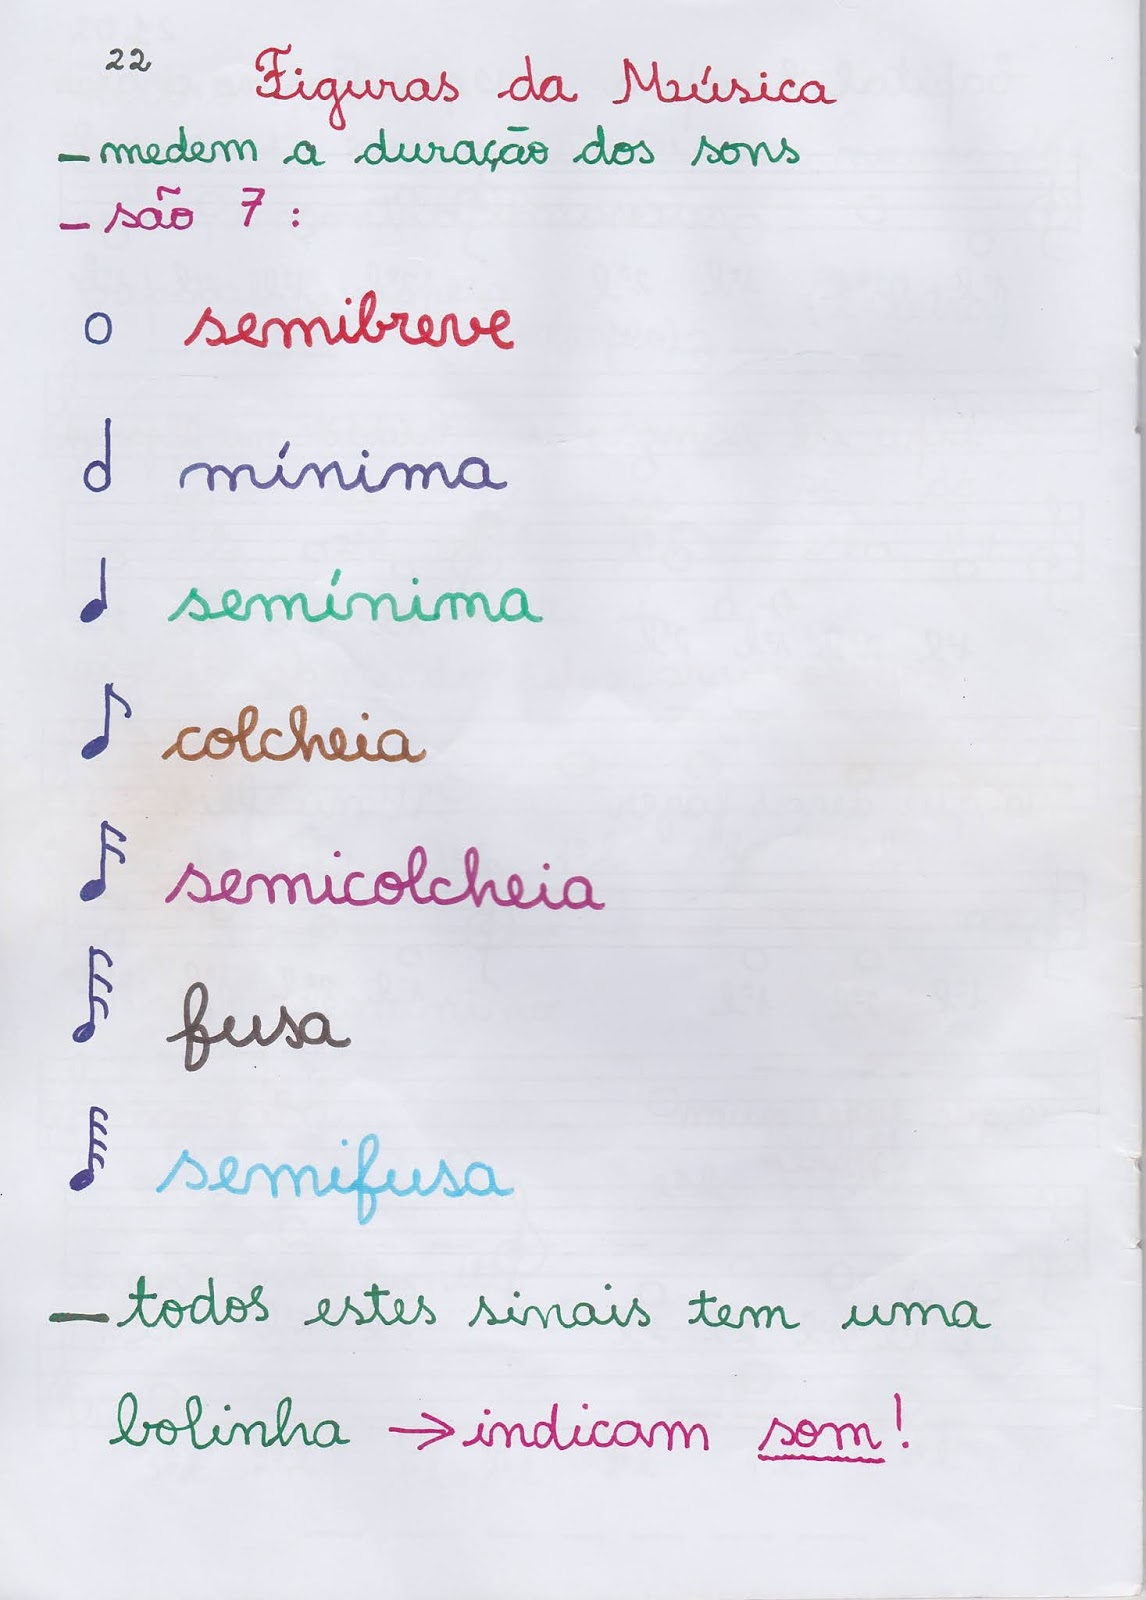 22
Figuras da Música
- medem a duração dos sons
- são 7 :
semibreve
mínima
semínima
colcheia
semicolcheia
fusa
semifusa
- todos estes sinais tem uma
bolinha → indicam som!